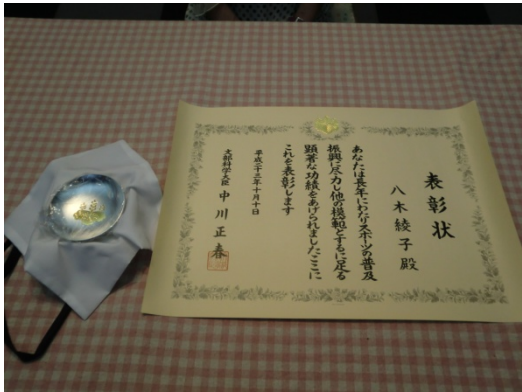 表彰状
八木綾子殿
あなたは長年にわたりスポーツの普及
振興に尽力し他の模範とするに足る
顕著な功績をあげられましたここに
これを表彰します
平成二十三年十月十日
文部科学大臣 中川正春